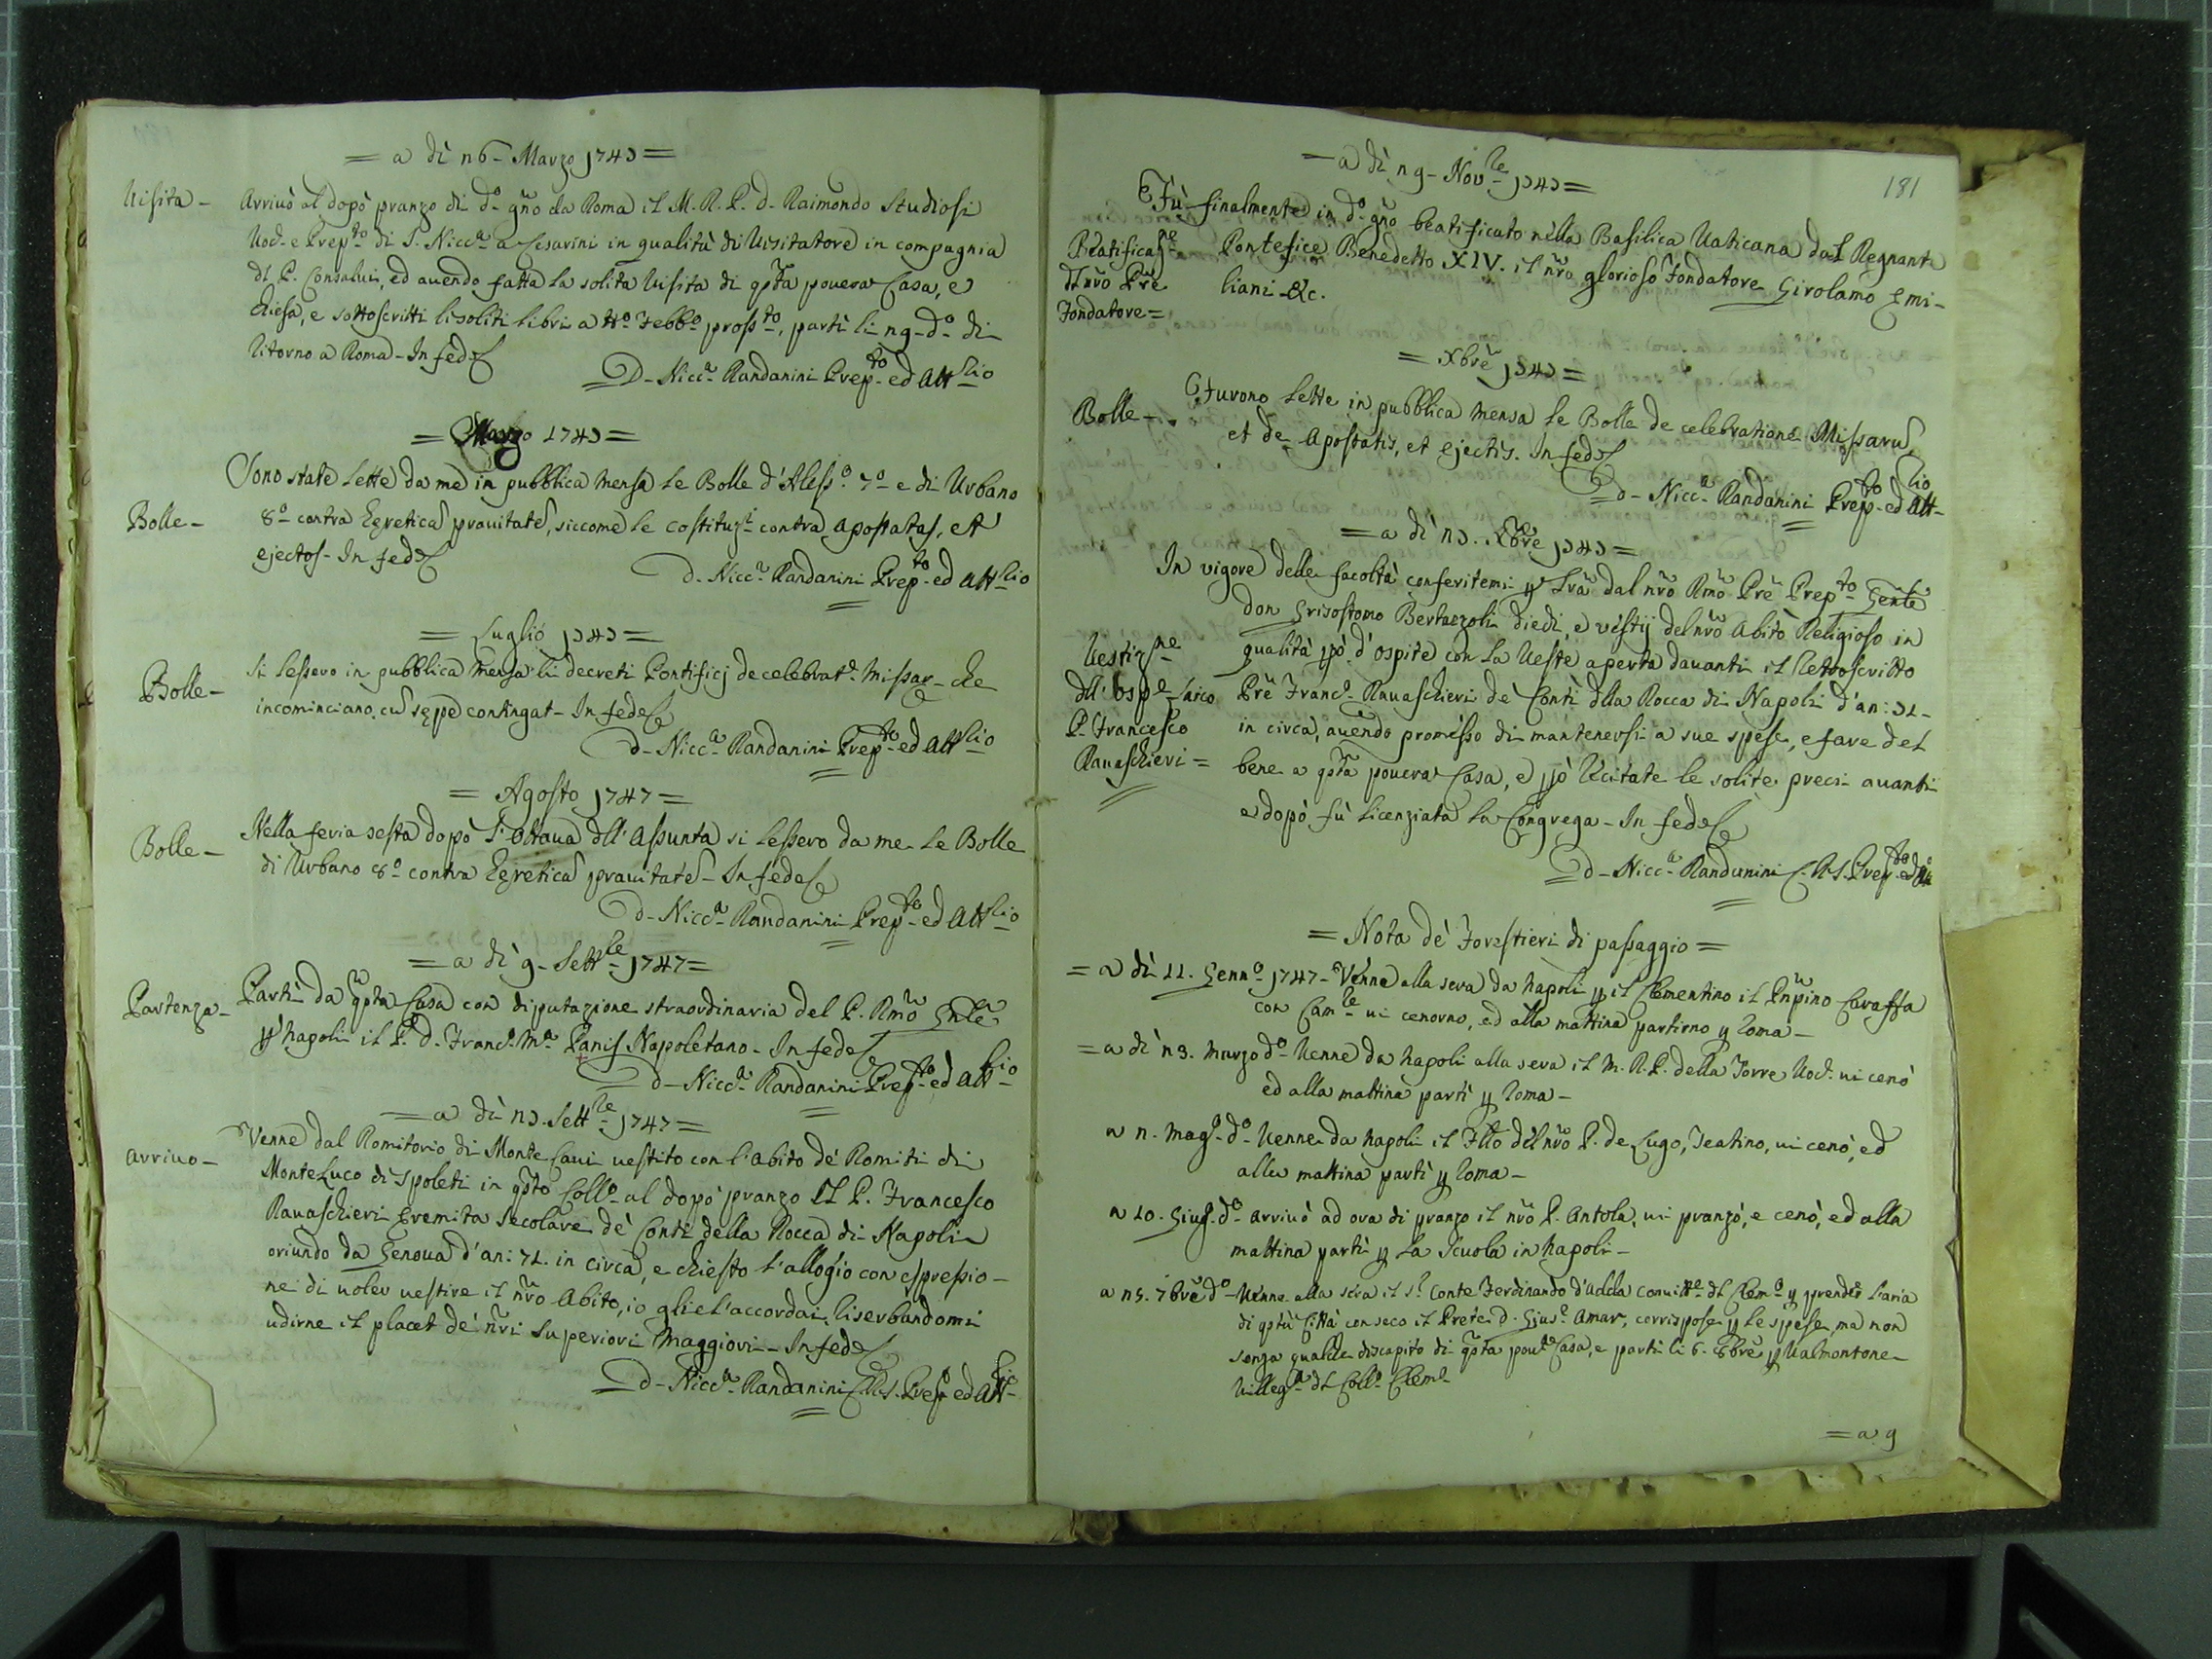 = a dì 26 - Marzo 1747 =
Visita - Arrivò al dopò pranzo di d.o gño da Roma il M. R. P. d. Raimondo Studiosi
Voc.e e Prep.to di S. Nicc.a a Cesarini in qualità di Visitatore in compagnia
dl P. Consalvi, ed avendo fatta la solita visita di qsta povera Casa, e
Chiesa, e sottoscritti li soliti libri a tt.o Febb.o pross.to, partì li 29 - d.o di
ritorno a Roma - In fede
D - Nicc.a Randanini Prep.to ed Att.rio
= Marzo 1747 =
Bolle - Sono state lette da me in pubblica mensa le Bolle d'Aless.o 7.o e di Urbano
8.o contra Hęretica pravitate, siccome le costituz.i contra, apostatas, et
ejectos - In fede
d - Nicc.a Randanini Prep.to ed Att.rio
= Luglio 1747 =
Bolle - Si lessero in pubblica mensa li decreti Pontificj de celebrat.e Missar - che
incominciano, cũ sępe contingat - In fede
d - Nicc.a Randanini Prep.to ed Att.rio
= Agosto 1747 =
Bolle - Nella feria sesta dopò l'Ottava dll'Assunta si lessero da me le Bolle
di Urbano 8.o contra Hęretica pravitate - In fede
d - Nicc.a Randanini Prep.to ed Att.rio
= a dì 9 - Sett.re 1747 =
Partenza - Partì da qsta Casa con diputazione straordinaria del P. Rmo Gnle
p Napoli il P. d. Franc.o M.a Panis Napoletano - In fede
d - Nicc.a Randanini Prep.to ed Att.rio
= a dì 27. Sett.re 1747 =
Arrivo - Venne dal Romitorio di Monte Cavi vestito con l'abito de' Romiti di
Monte Luco di Spoleti in qsto Coll.o al dopò pranzo Il P. Francesco
Ravaschieri Eremita Secolare de' Conti della Rocca di Napoli
oriundo da Genova d'an: 71. in circa, e chiesto l'allogio con espressio-
ne di voler vestire il nro Abito, io gliel'accordai, riserbandomi
udirne il placet de' nri Superiori Maggiori - In fede
d - Nicc.a Randanini C.R.S. Prep.to ed Att.rio
181
= a dì 29 - Nov.re 1747 =
Beatificaz.ne dl nro Pre Fondatore = Fù finalmente in d.o gño beatificato nella Basilica Vaticana dal Regnante
Pontefice Benedetto XIV. il nro glorioso Fondatore Girolamo Emi-
liani &c.
= Xbre 1747 =
Bolle - Furono lette in pubblica mensa le Bolle de celebratione Missarũ,
et de Apostatis, et ejectis. In fede
d - Nicc.a Randanini Prep.to ed Att.rio
= a dì 27. Xbre 1747 =
In vigore delle facoltà conferitemi p lra dal nro Rmo Pre Prep.to Genle
don Grisostomo Bertazzoli diedi, e vestij del nro Abito Religioso in
Vestiz.ne qualità però d'ospite con la Veste aperta davanti il retroscritto
dll'osp.e laico Pre Franc.o Ravaschieri de' Conti dlla Rocca di Napoli d'an: 71 -
P. Francesco in circa, avendo promesso di mantenersi a sue spese, e fare del
Ravaschieri = bene a qsta povera Casa, e però recitate le solite preci avanti
e dopò fù licenziata la Congrega - In fede
d - Nicc.a Randanini C.R.S. Prep.to ed Att.
= Nota de' Forestieri di passaggio =
= a dì 11. Genn.o 1747 - Venne alla sera da Napoli p il Clementino il Prnpino Caraffa
con Cam.re vi cenorno, ed alla mattina partirno p Roma -
= a dì 23. Marzo d.o - Venne da Napoli alla sera il M. R. P. della Torre Voc.e vi cenò
ed alla mattina partì p Roma -
a 2. Mag.o d.o - Venne da Napoli il Fllo del nro P. de Lugo, Teatino, vi cenò, ed
alla mattina partì p Roma -
a 10. Giug.o d.o - Arrivò ad ora di pranzo il nro P. Antola, vi pranzò, e cenò, ed alla
mattina partì p la Scuola in Napoli -
a 25. 7bre d.o - Venne alla sera il S.r Conte Ferdinando d'Adda convitt.re dl Clem.o p prender l'aria
di qsta Città con seco il Prete d. Gius.e Amar, corrispose p le spese, ma non
senza qualche discapito di qsta pov.a Casa, e partì li 6. 8bre p Valmontone
Villeg.ra dl Coll.o Clem.o
= a 9